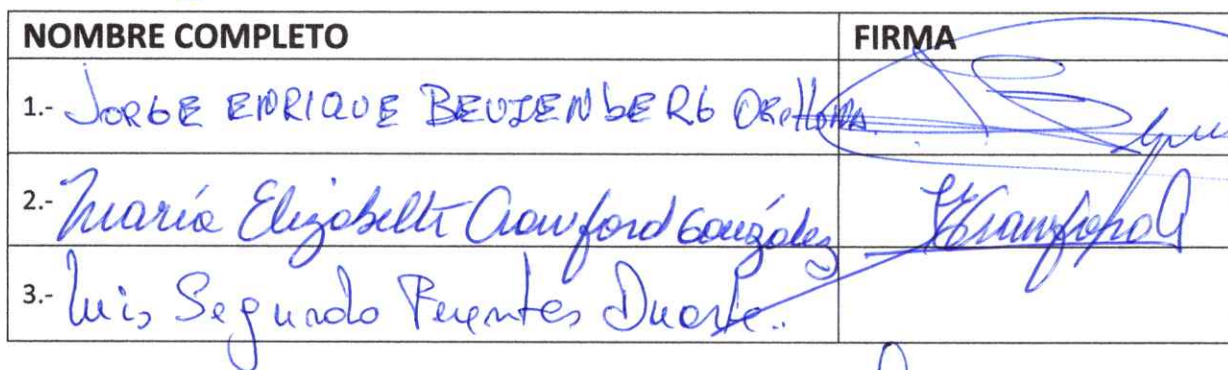 NOMBRE COMPLETO FIRMA
1.- JORGE ENRIQUE Orellana
2.- María Elizabeth Crawford González HCrawford
3.- Luis Segundo Fuentes Duarte.